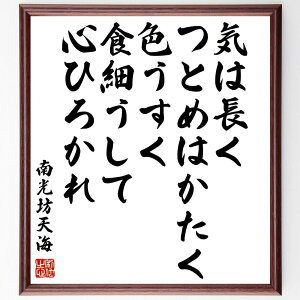 気は長く
つとめはかたく
色うすく
食細うして
心ひろかれ
南光坊天海